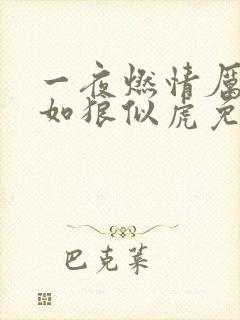 一夜燃情厉
如狼似虎免
巴克莱